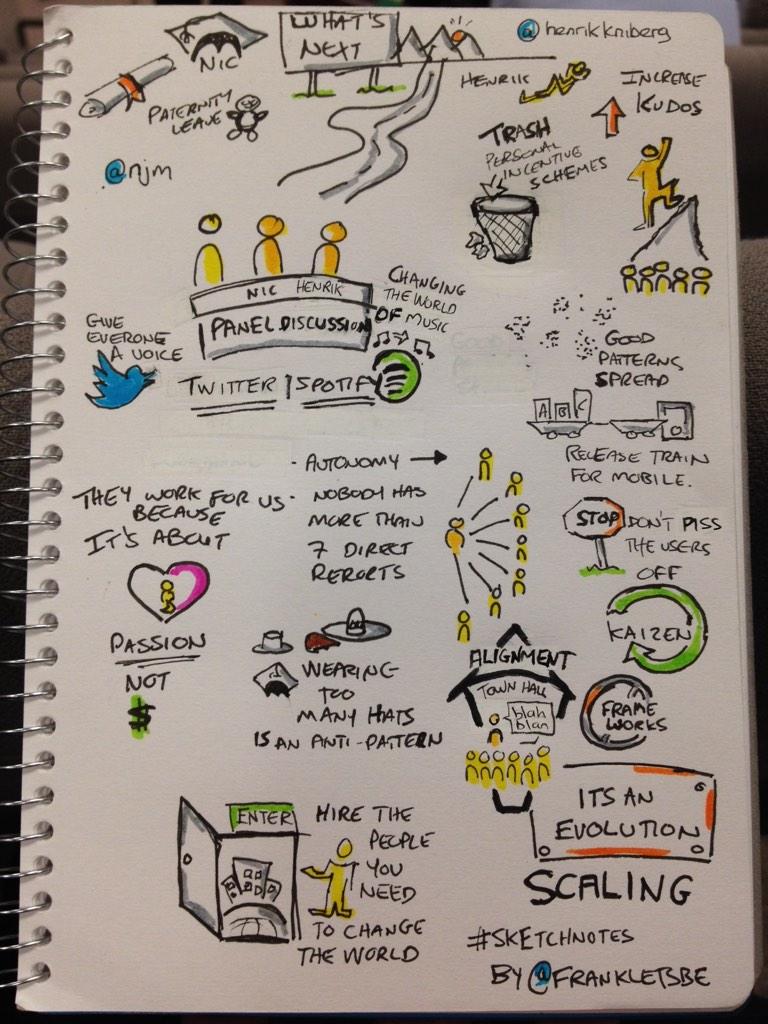 WHAT'S
NEXT
@henrikkniberg
NIC
PATERNITY
LEAVE
@njm
HENRIK
INCREASE
KUDOS
TRASH
PERSONAL
INCENTIVE
SCHEMES
NIC HENRIK
PANEL DISCUSSION
CHANGING
THE WORLD
OF MUSIC
GIVE
EVERONE
A VOICE
TWITTER | SPOTIFY
GOOD
PATTERNS
SPREAD
A B C
RELEASE TRAIN
FOR MOBILE.
THEY WORK FOR US
BECAUSE
IT'S ABOUT
PASSION
NOT
$
- AUTONOMY
- NOBODY HAS
MORE THAN
7 DIRECT
REPORTS
STOP
DON'T PISS
THE USERS
OFF
KAIZEN
WEARING
TOO
MANY HATS
IS AN ANTI-PATTERN
ALIGNMENT
TOWN HALL
blah
blah
FRAME
WORKS
ITS AN
EVOLUTION
SCALING
ENTER
HIRE THE
PEOPLE
YOU
NEED
TO CHANGE
THE WORLD
#SKETCHNOTES
BY @FRANKLETSBE